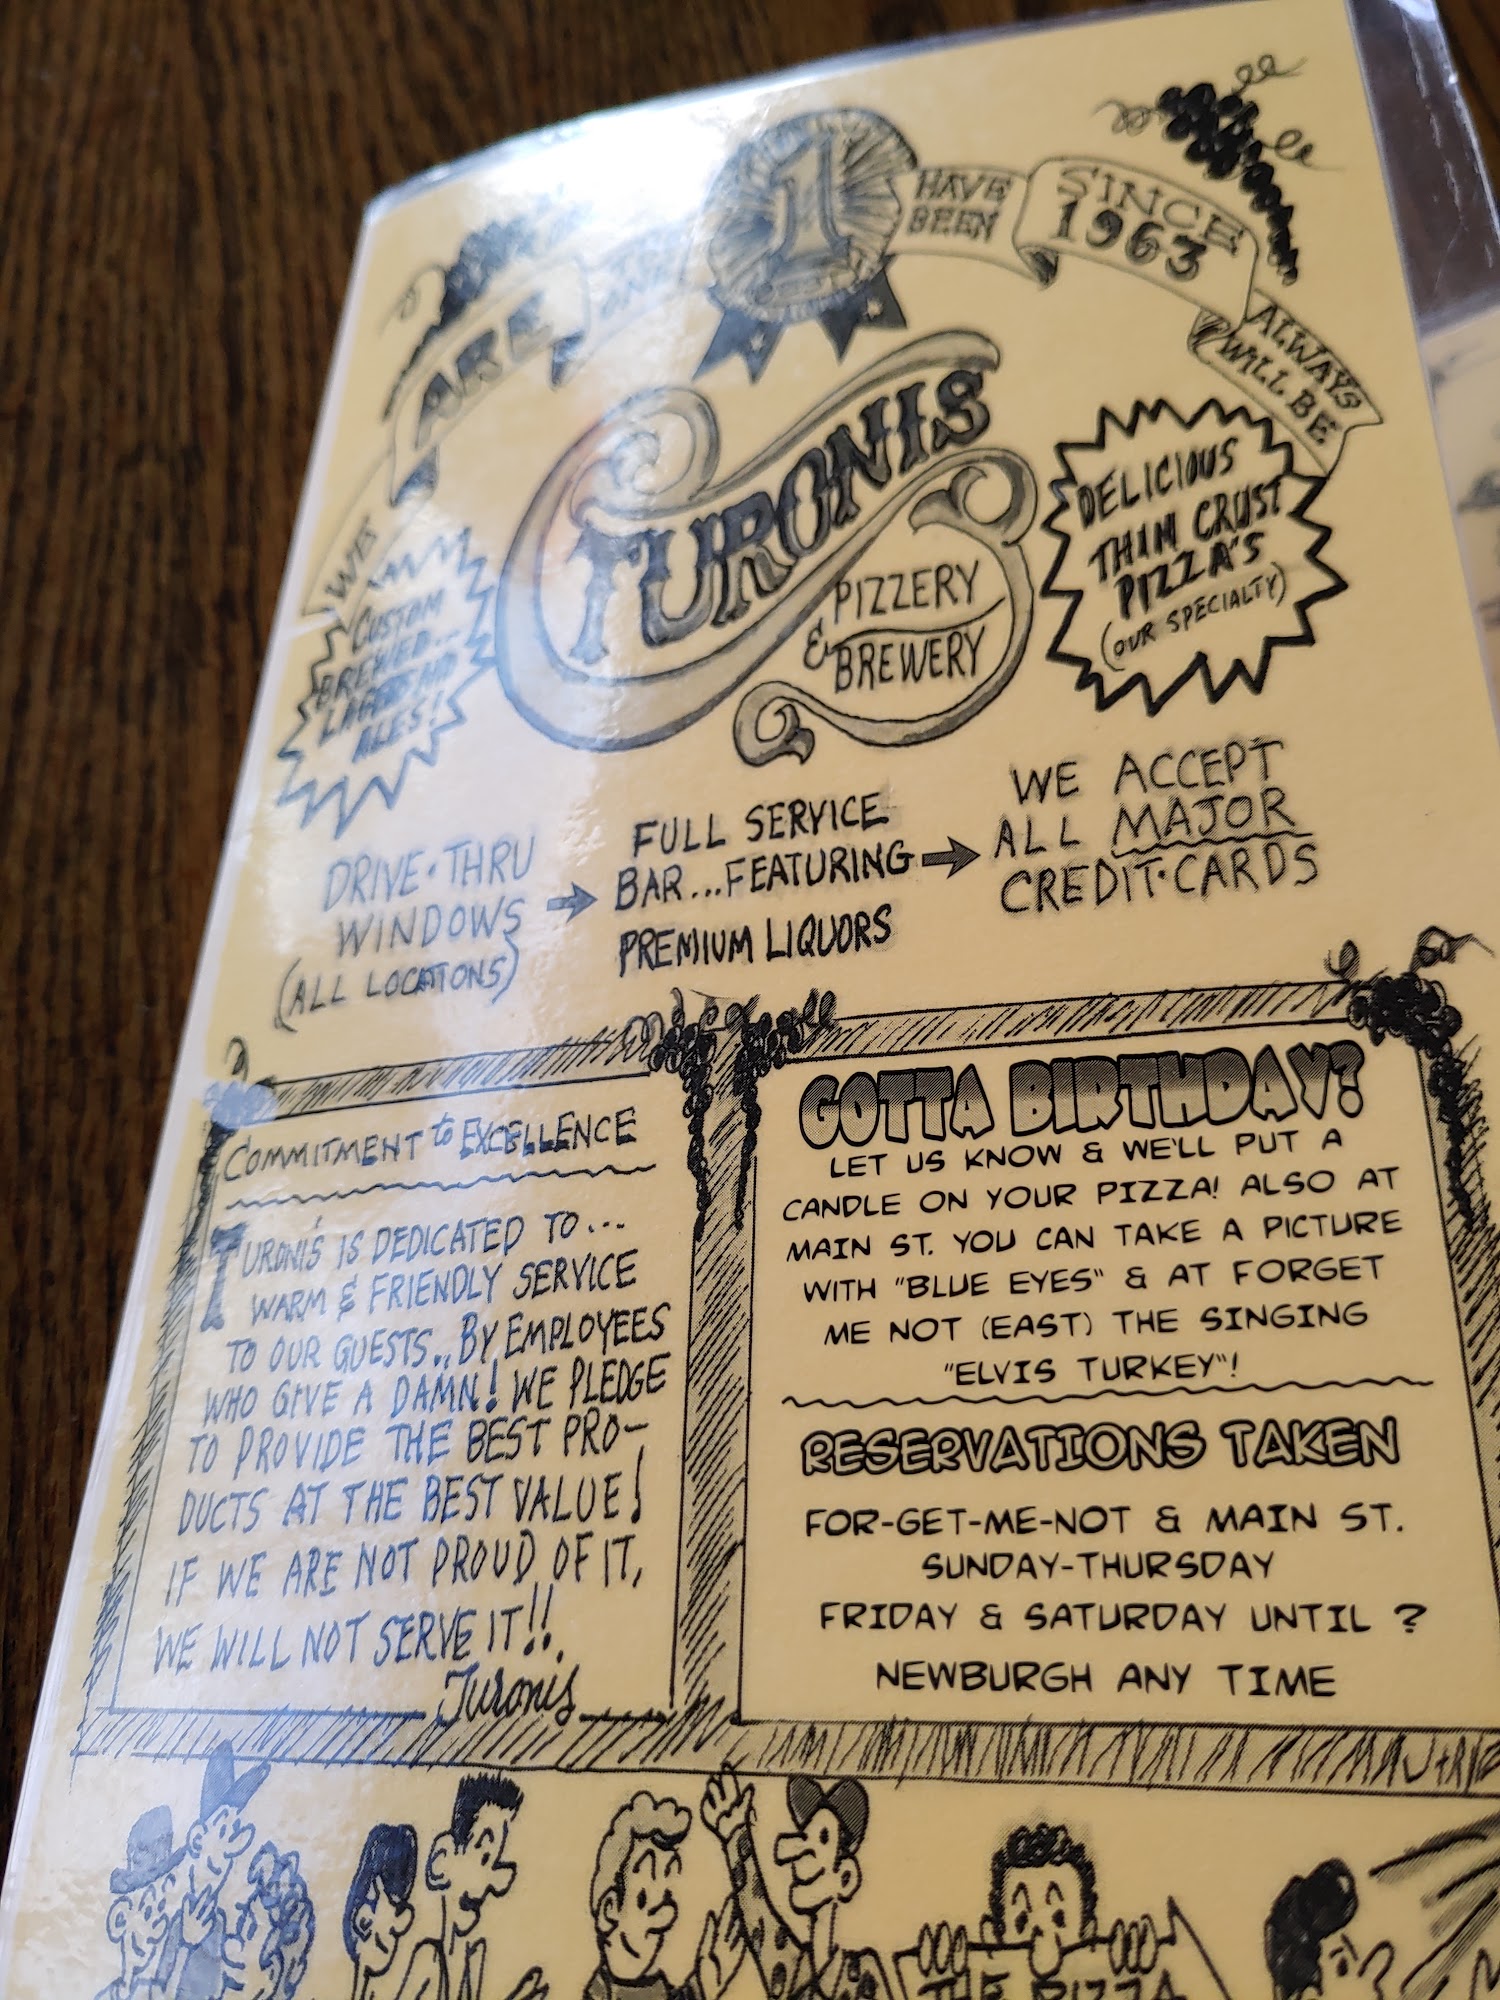 WE'S
ARE
THE
ONE
1
HAVE
BEEN
SINCE
1963
ALWAYS
WILL BE
TURONIS
PIZZERY
& BREWERY
CUSTOM
BREWED...
LAGERS AND
ALES!
DELICIOUS
THIN CRUST
PIZZA'S
(OUR SPECIALTY)
DRIVE-THRU
WINDOWS
(ALL LOCATIONS)
FULL SERVICE
BAR...FEATURING
PREMIUM LIQUORS
WE ACCEPT
ALL MAJOR
CREDIT-CARDS
COMMITMENT to EXCELLENCE
TURONI'S IS DEDICATED TO...
WARM & FRIENDLY SERVICE
TO OUR GUESTS.. BY EMPLOYEES
WHO GIVE A DAMN! WE PLEDGE
TO PROVIDE THE BEST PRO-
DUCTS AT THE BEST VALUE!
IF WE ARE NOT PROUD OF IT,
WE WILL NOT SERVE IT!!
Turonis
GOTTA BIRTHDAY?
LET US KNOW & WE'LL PUT A
CANDLE ON YOUR PIZZA! ALSO AT
MAIN ST. YOU CAN TAKE A PICTURE
WITH "BLUE EYES" & AT FORGET
ME NOT (EAST) THE SINGING
"ELVIS TURKEY"!
RESERVATIONS TAKEN
FOR-GET-ME-NOT & MAIN ST.
SUNDAY-THURSDAY
FRIDAY & SATURDAY UNTIL ?
NEWBURGH ANY TIME
THE PIZZA